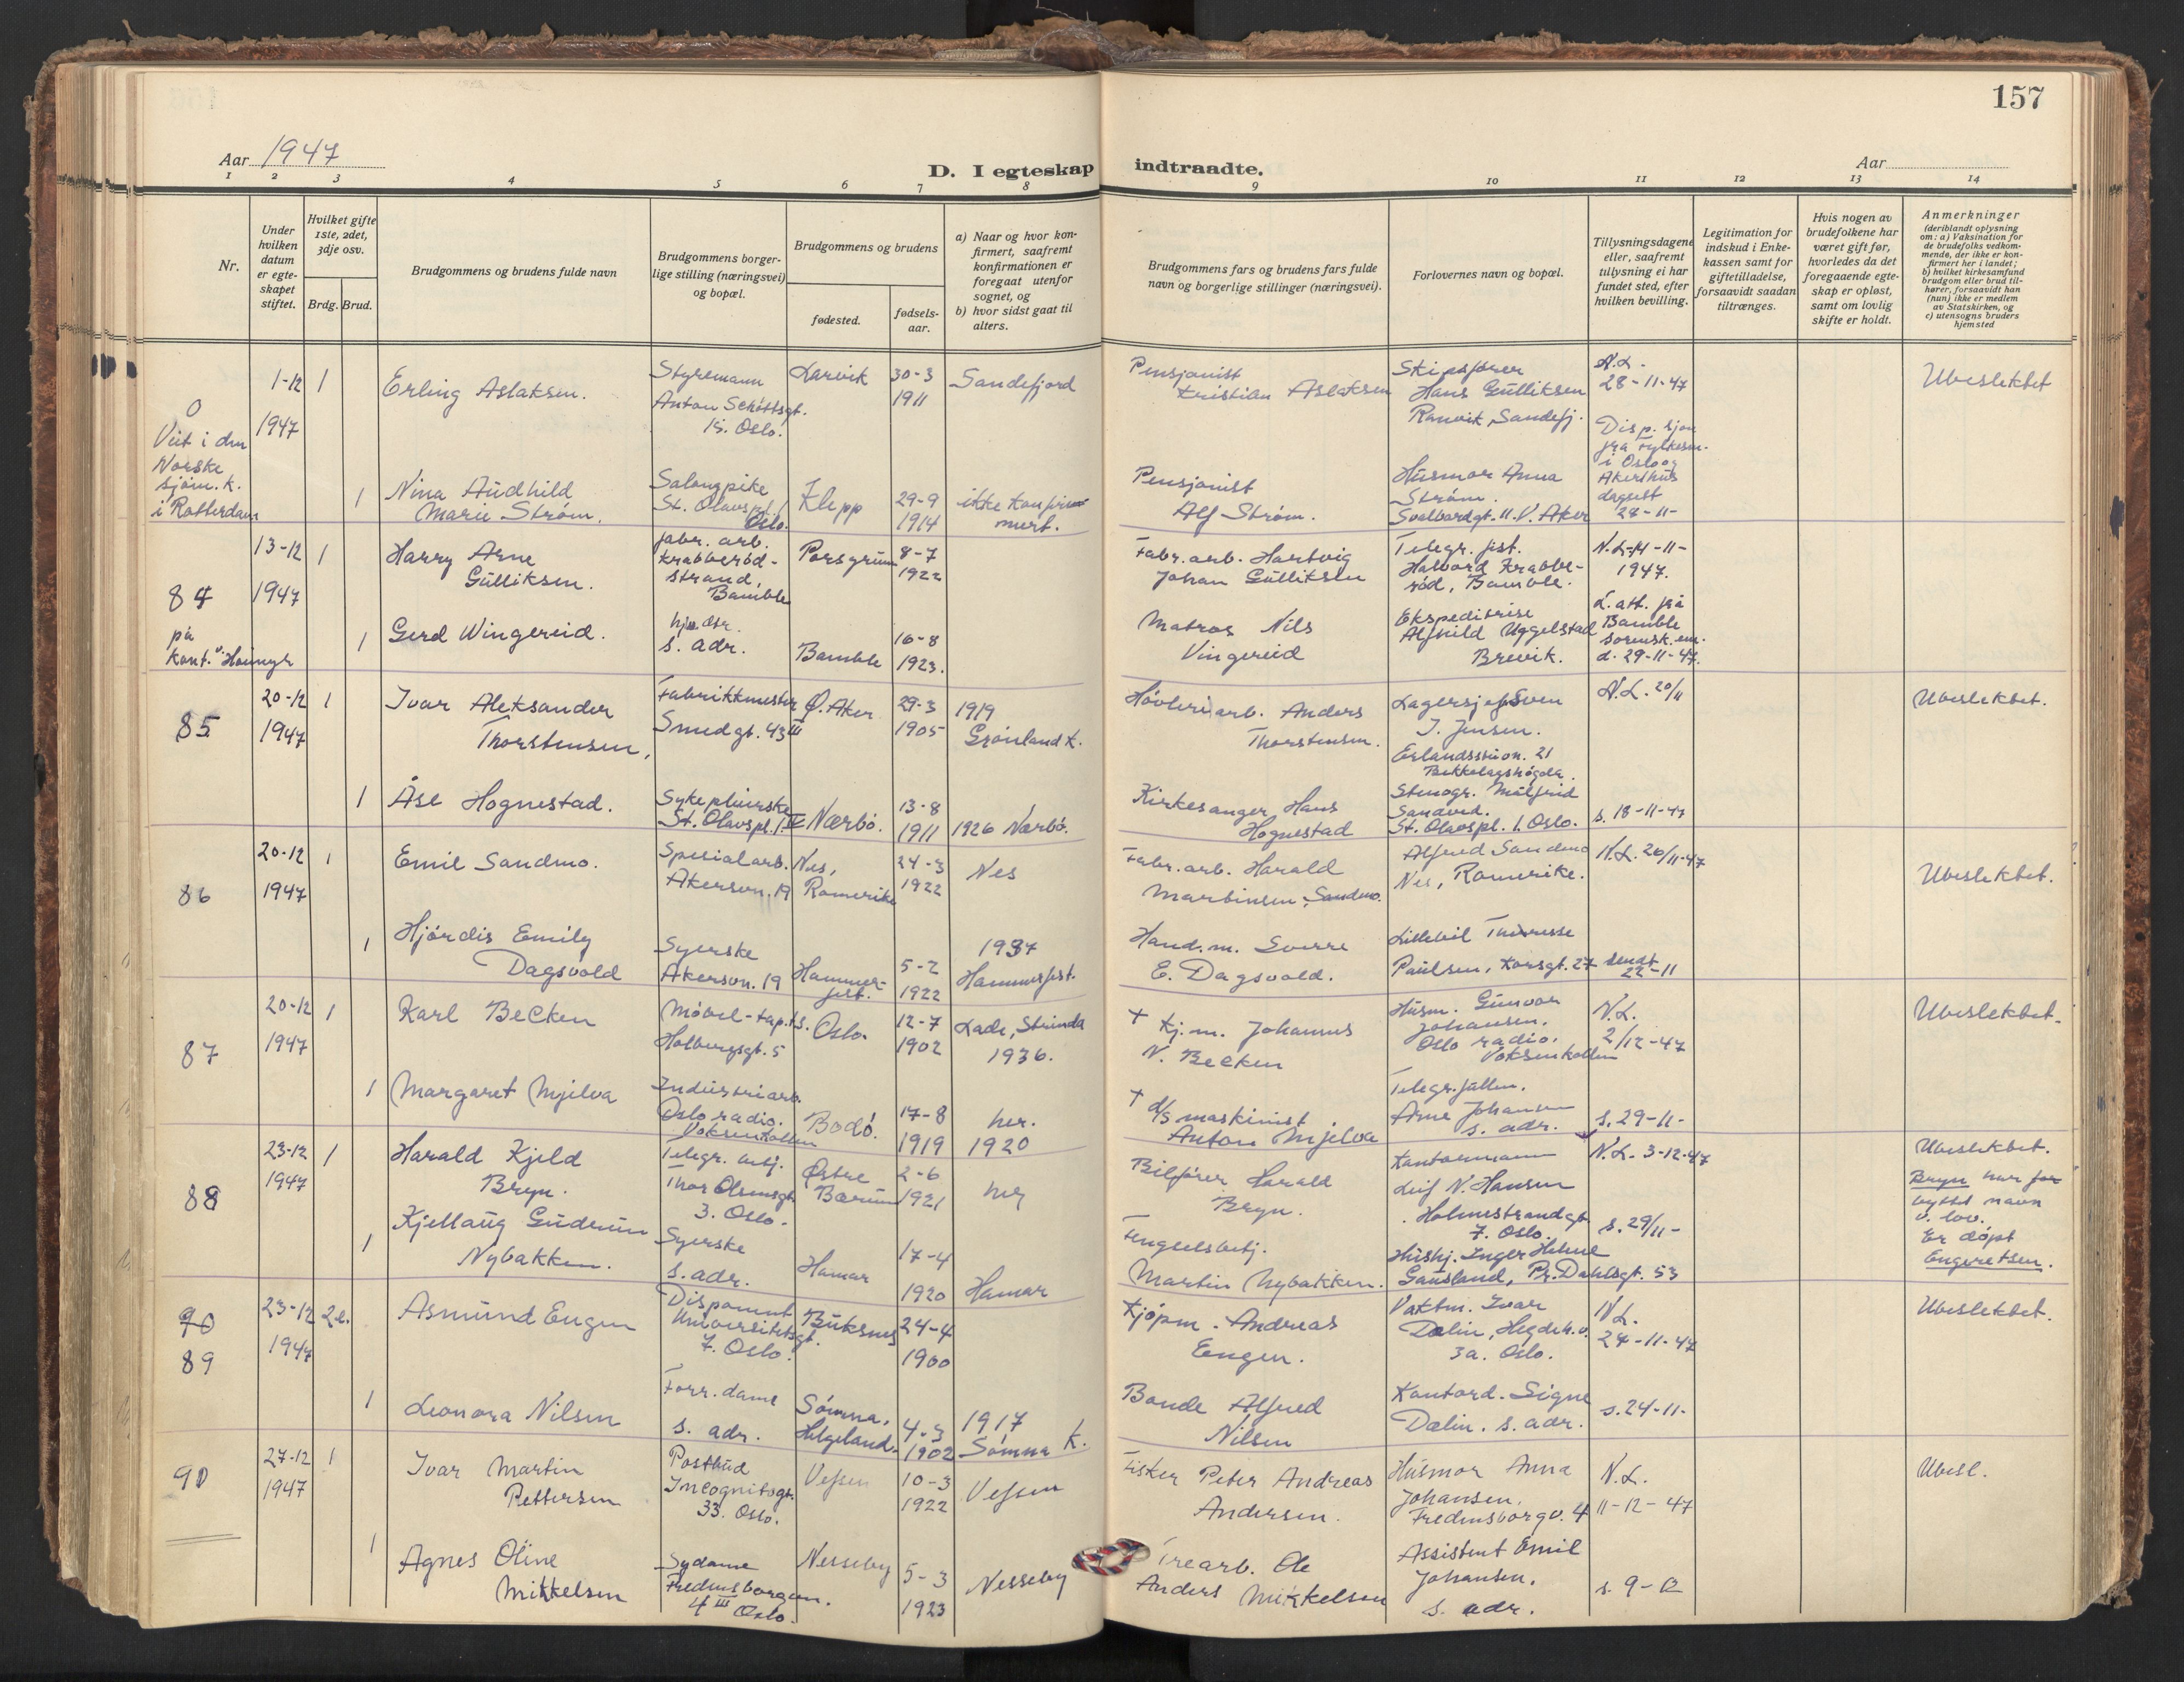 157
Aar 1947
D. I egteskap indtraadte.
Aar
1 2 3 4 5 6 7 8 9 10 11 12 13 14
Nr.
Under hvilken datum er egteskapet stiftet.
Hvilket gifte 1ste, 2det, 3dje osv.
Brdg. Brud.
Brudgommens og brudens fulde navn
Brudgommens borgerlige stilling (næringsvei) og bopæl.
Brudgommens og brudens
fødested.
fødselsaar.
a) Naar og hvor konfirmert, saafremt konfirmationen er foregaat utenfor sognet, og
b) hvor sidst gaat til alters.
Brudgommens fars og brudens fars fulde navn og borgerlige stillinger (næringsvei).
Forlovernes navn og bopæl.
Tillysningsdagene eller, saafremt tillysning ei har fundet sted, efter hvilken bevilling.
Legitimation for indskud i Enkekassen samt for giftetilladelse, forsaavidt saadan tiltrænges.
Hvis nogen av brudefolkene har været gift før, hvorledes da det foregaaende egteskap er opløst, samt om lovlig skifte er holdt.
Anmerkninger (deriblandt oplysning om: a) Vaksination for de brudefolks vedkommende, der ikke er konfirmert her i landet; b) hvilket kirkesamfund brudgom eller brud tilhører, forsaavidt han (hun) ikke er medlem av Statskirken, og c) utensogns bruders hjemsted
0
Viet i den
Norske
sjøm. k.
i Rotterdam
1-12
1947
1
Erling Aslaksen.
Styrmann
Anton Schøttsgt.
15. Oslo.
Larvik
30-3
1911
Sandefjord
Pensjonist
Kristian Aslaksen
Skipsfører
Hans Gulliksen
Ranvik, Sandefj.
N.L.
28-11-47
Ubeslektet
1
Nina Audhild
Marie Strøm.
Salongpike
St. Olavspl. 1
Oslo.
Klepp
29-9
1914
ikke konfirmert.
Pensjonist
Alf Strøm.
Husmor Anna
Strøm.
Svalbardgt. 11. V. Aker
Disp. sjon
fra Fylkesm.
i Oslo og
Akershus
dagsett
28-11-
84
på
kont.
13-12
1947
1
Harry Arne
Gulliksen.
fabr. arb.
Krabberød-
strand,
Bamble
Porsgrunn
8-7
1922
Fabr.arb. Hartvig
Johan Gulliksen
Telegr. best.
Halvord Krabbe-
rød, Bamble.
N.L. 14-11-
1947.
1
Gerd Wingereid.
hjem. dtr.
s. adr.
Bamble
16-8
1923.
Matros Nils
Vingereid
Ekspeditrise
Alfhild Uggelstad
Brevik.
L. att. frå
Bamble
sorensk.em.
d. 29-11-47.
85
20-12
1947
1
Ivar Aleksander
Thorstensen,
Fabrikkmester
Smedgt. 43 III
Ø. Aker
29-3
1905
1919
Grønland k.
Høvleriarb. Anders
Thorstensen.
Lagersjef Sven
J. Jensen.
Erlandssvn. 21
Bekkelagshøgda.
N.L. 20/11
Ubeslektet.
1
Åse Hognestad.
Sykepleierske
St. Olavspl. 1 IV
Nærbø.
13-8
1911
1926 Nærbø.
Kirkesanger Hans
Hognestad
Stenogr. Målfrid
Sandved.
St. Olavspl. 1. Oslo.
s. 18-11-47
86
20-12
1947
1
Emil Sandmo.
Spesialarb.
Akersvn. 19
Nes,
Romerike
24-3
1922
Nes
Fabr.arb. Harald
Martinsen, Sandmo.
Alfred Sandmo
Nes, Romerike.
N.L. 20/11-47
Ubeslektet.
1
Hjørdis Emily
Dagsvold
Syerske
Akersvn. 19
Hammer-
fest.
5-2
1922
1937
Hammerfest.
Hand.m. Sverre
E. Dagsvold.
Lillebil Therese
Paulsen, Korsgt. 27
sendt
22-11
87
20-12
1947
1
Karl Becken
Møbel-tap.
Holbergsgt. 5
Oslo.
12-7
1902
Lade, Strinda
1936.
+ Kj.m. Johannes
N. Becken
Husm. Gunvor
Johansen.
Oslo radio.
Voksenkollen
N.L.
2/12-47
Ubeslektet.
1
Margaret Mjelva
Industriarb.
Oslo radio.
Voksenkollen
Bodø.
17-8
1919
her.
1920
+ d/s maskinist
Anton Mjelva
Telegr.fullm.
Arne Johansen
s. adr.
s. 29-11-
88
23-12
1947
1
Harald Kjeld
Bryn.
Telegr. betj.
Thor Olsensgt
3. Oslo.
Østre
Bærum
2-6
1921
her
Bilfører Harald
Bryn.
Kontormann
Leif N. Hansen
Holmestrandgt
7. Oslo.
N.L. 3-12-47
Ubeslektet.
Bryn har for
byttet navn
v. lov.
Er døpt
Engeretsen.
1
Kjellaug Gudrun
Nybakken.
Syerske
s. adr.
Hamar
17-4
1920
Hamar
Fengselsbetj.
Martin Nybakken.
Hushj. Inger Helene
Gausland, Pr. Dahlsgt. 53
s. 29/11-
90
89
23-12
1947
2.
Asmund Engen
Disponent
Universitetsgt.
7. Oslo.
Buksnes
24-4
1900
Kjøpm. Andreas
Engen.
Vaktm. Ivar
Dalin, Hegdeh.v.
3a. Oslo.
N.L.
24-11-47
Ubeslektet.
1
Leonora Nilsen
Forr. dame
s. adr.
Sømna,
Helgeland.
4-3
1902
1917
Sømna k.
Bonde Alfred
Nilsen
Kontord. Signe
Dalin. s. adr.
s. 24-11-
90
27-12
1947
1
Ivar Martin
Pettersen
Postbud
Incognitogt.
33. Oslo.
Vefsen
10-3
1922
Vefsen
Fisker Peter Andreas
Andersen.
Husmor Anna
Johansen.
Fredensborgv. 4
N.L.
11-12-47
Ubesl.
1
Agnes Oline
Mikkelsen
Sydame
Fredensborgvn.
4 III Oslo.
Nesseby
5-3
1923
Nesseby
Trearb. Ole
Anders Mikkelsen
Assistent Emil
Johansen.
s. adr.
s. 9-12